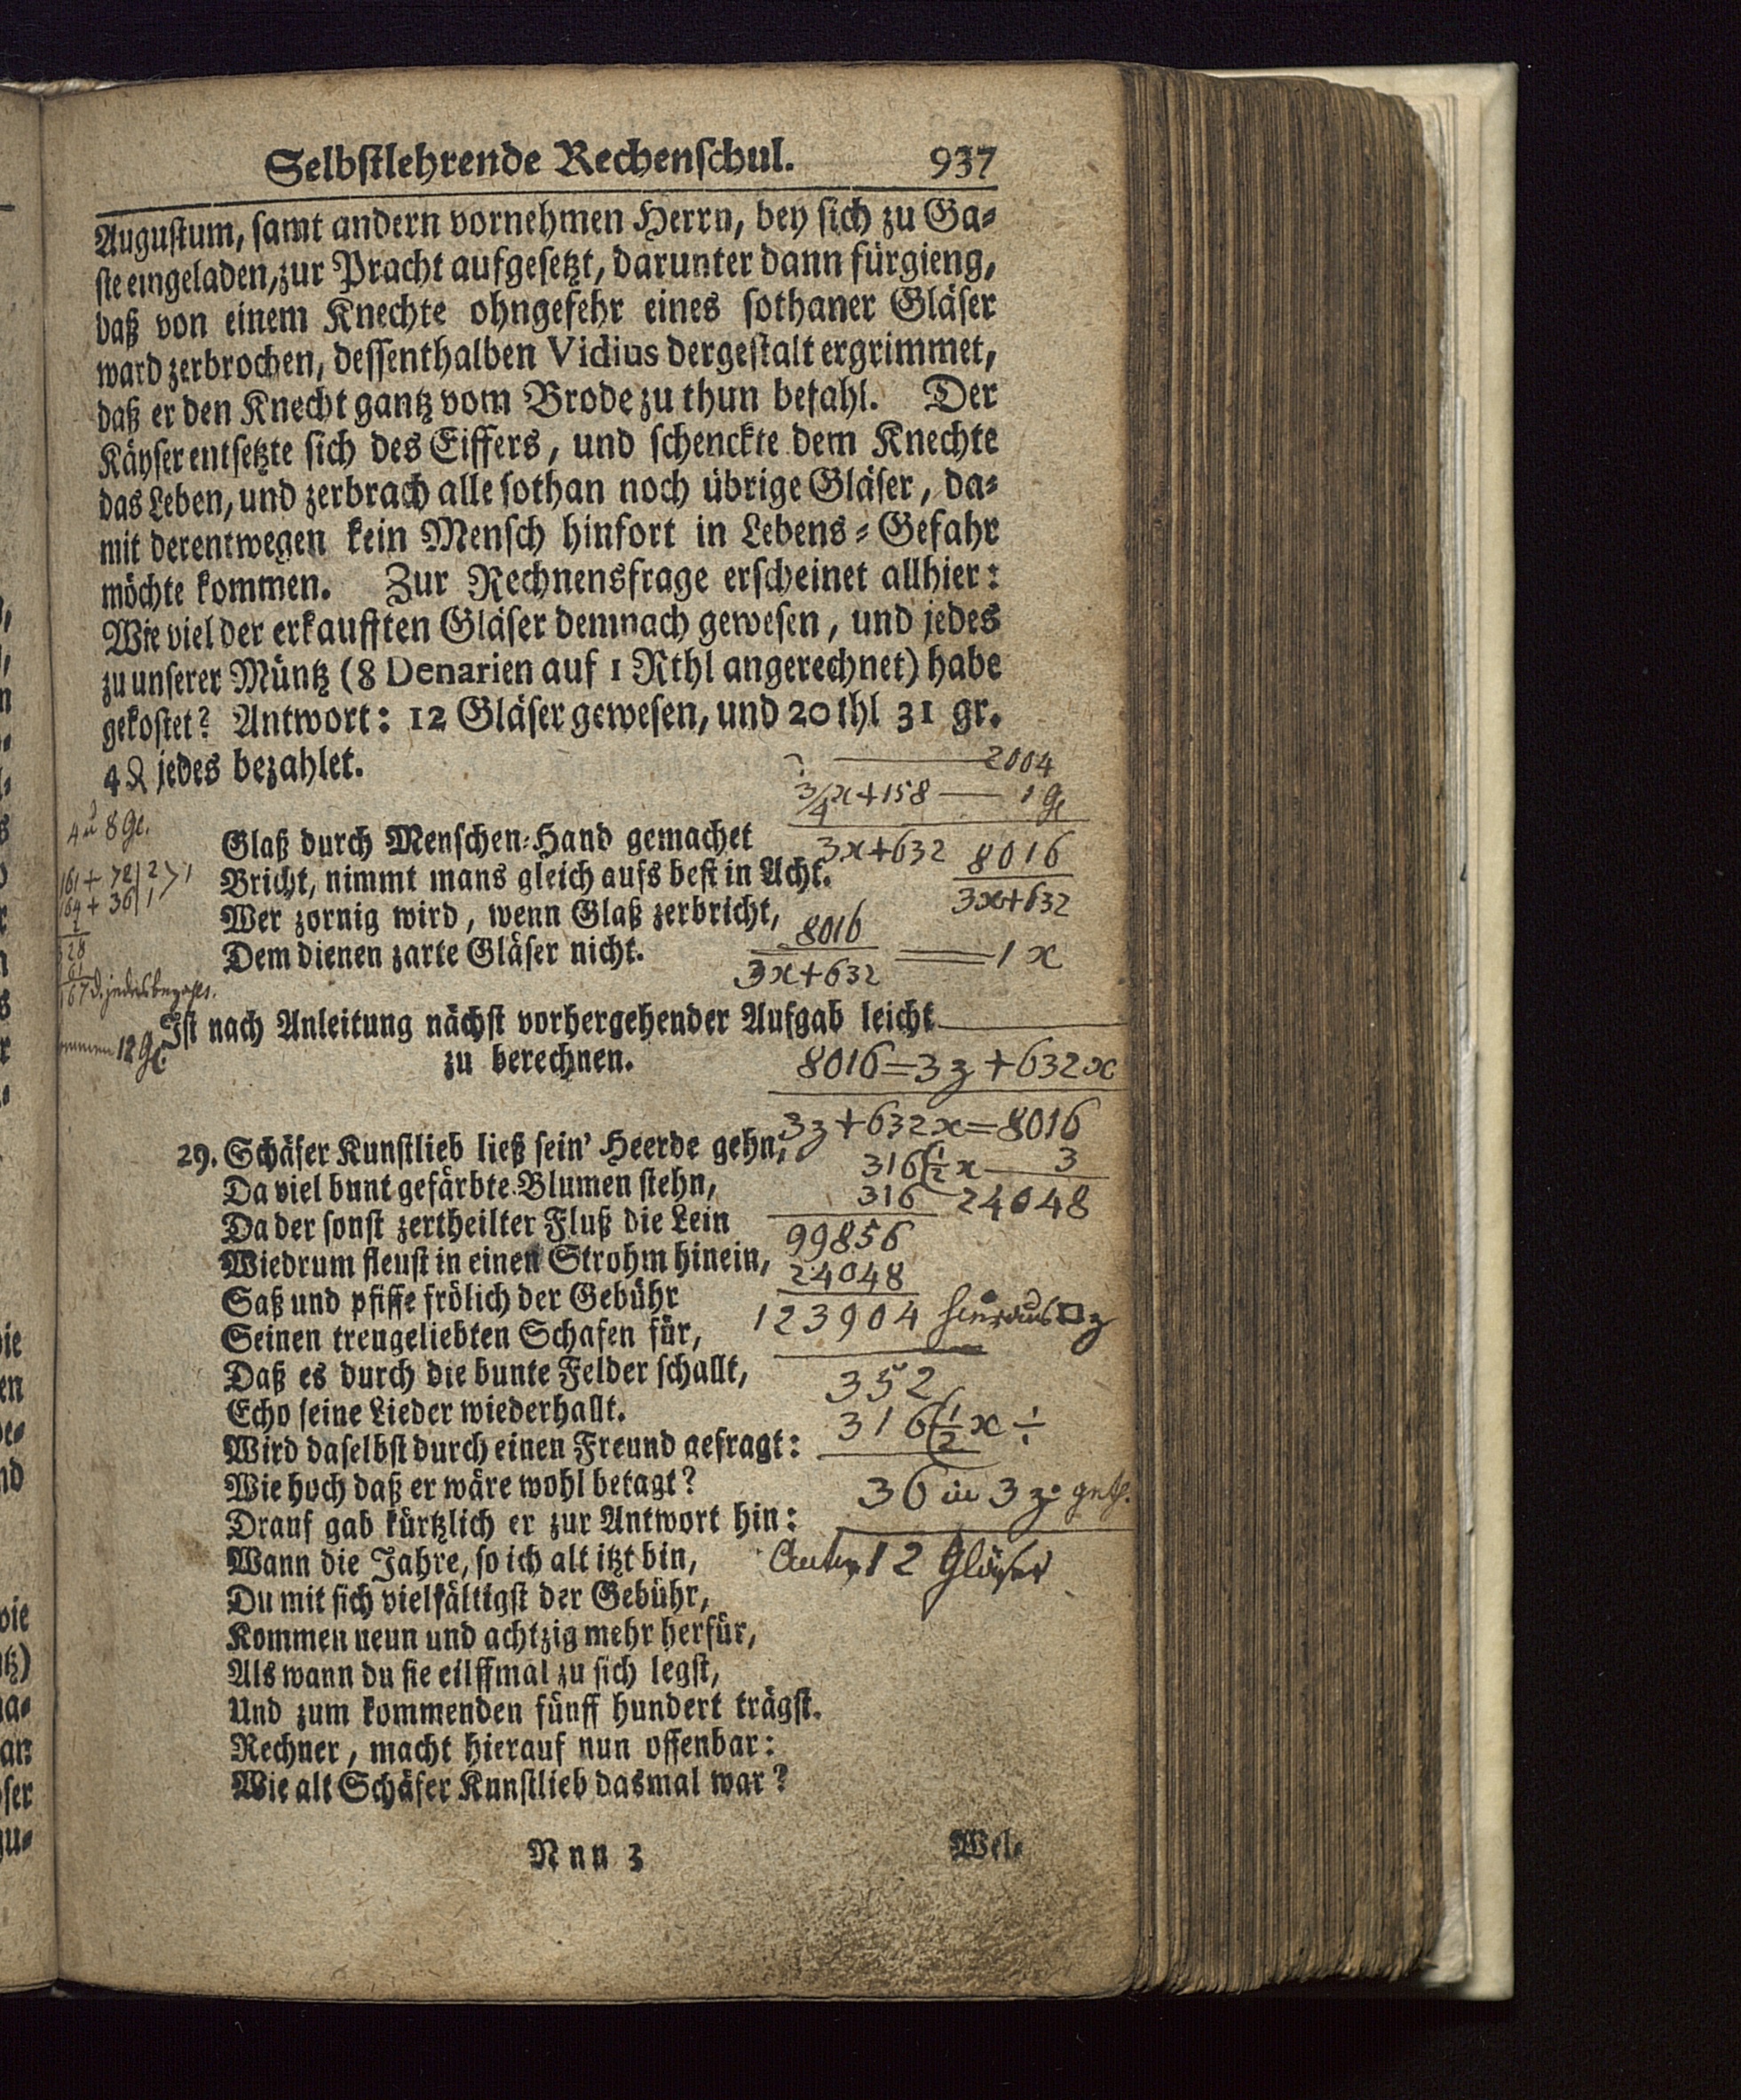 Selbstlehrende Rechenschul. 937
Augustum, samt andern vornehmen Herrn, bey sich zu Ga⸗
ste eingeladen, zur Pracht aufgesetzt, darunter dann fürgieng,
daß von einem Knechte ohngefehr eines sothaner Gläser
ward zerbrochen, dessenthalben Vidius dergestalt ergrimmet,
daß er den Knecht gantz vom Brode zu thun befahl. Der
Käyser entsetzte sich des Eiffers, und schenckte dem Knechte
das Leben, und zerbrach alle sothan noch übrige Gläser, da⸗
mit derentwegen kein Mensch hinfort in Lebens⸗Gefahr
möchte kommen. Zur Rechnensfrage erscheinet allhier:
Wie viel der erkaufften Gläser demnach gewesen, und jedes
zu unserer Müntz (8 Denarien auf 1 Rthl angerechnet) habe
gekostet? Antwort: 12 Gläser gewesen, und 20 thl 31 gr.
4 ₰ jedes bezahlet.
2004
3/4x+158 — 1 gl
3x+632 8016
3x+632
8016
3x+632 = 1 x
4 u 8 gl.
161 + 72 | 2 > 1
164 + 36 | 1
2
328
61
167 d. jedes bezahlt.
12 gl.
Glaß durch Menschen⸗Hand gemachet
Bricht, nimmt mans gleich aufs best in Acht.
Wer zornig wird, wenn Glaß zerbricht,
Dem dienen zarte Gläser nicht.
Ist nach Anleitung nächst vorhergehender Aufgab leicht
zu berechnen.
8016=3z+632x
3z+632x=8016
316(1/2 x — 3
316 24048
99856
24048
123904 hieraus □ z
352
316(1/2 x ÷
36 in 3 z.
12 Gläser
29. Schäfer Kunstlieb ließ sein' Heerde gehn,
Da viel bunt gefärbte Blumen stehn,
Da der sonst zertheilter Fluß die Lein
Wiedrum fleust in einen Strohm hinein,
Saß und pfiffe frölich der Gebühr
Seinen treugeliebten Schafen für,
Daß es durch die bunte Felder schallt,
Echo seine Lieder wiederhallt.
Wird daselbst durch einen Freund gefragt:
Wie hoch daß er wäre wohl betagt?
Drauf gab kürtzlich er zur Antwort hin:
Wann die Jahre, so ich alt itzt bin,
Du mit sich vielfältigst der Gebühr,
Kommen neun und achtzig mehr herfür,
Als wann du sie eilffmal zu sich legst,
Und zum kommenden fünff hundert trägst.
Rechner, macht hierauf nun offenbar:
Wie alt Schäfer Kunstlieb dasmal war?
Nnn 3 Wel⸗